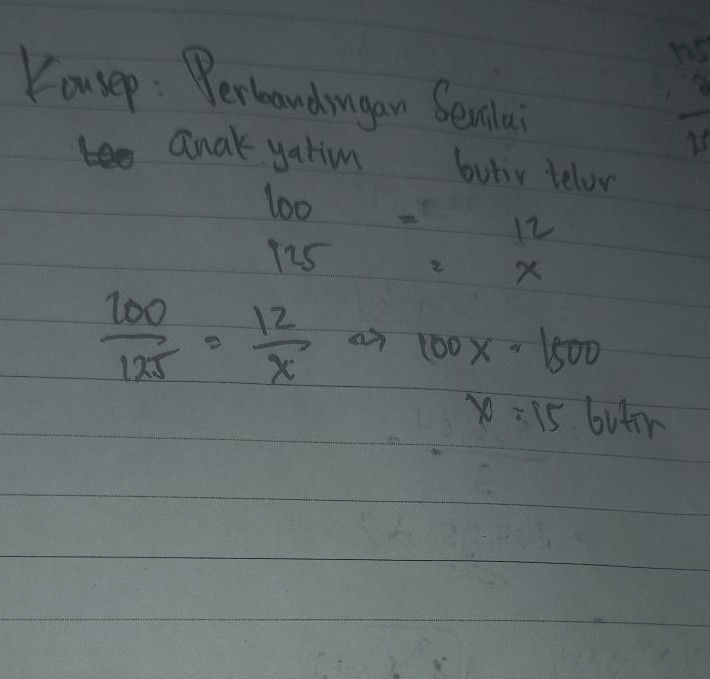 Konsep : Perbandingan Senilai
anak yatim butir telur
100 = 12
125 = x
100/125 = 12/x => 100x = 1500
x = 15 butir